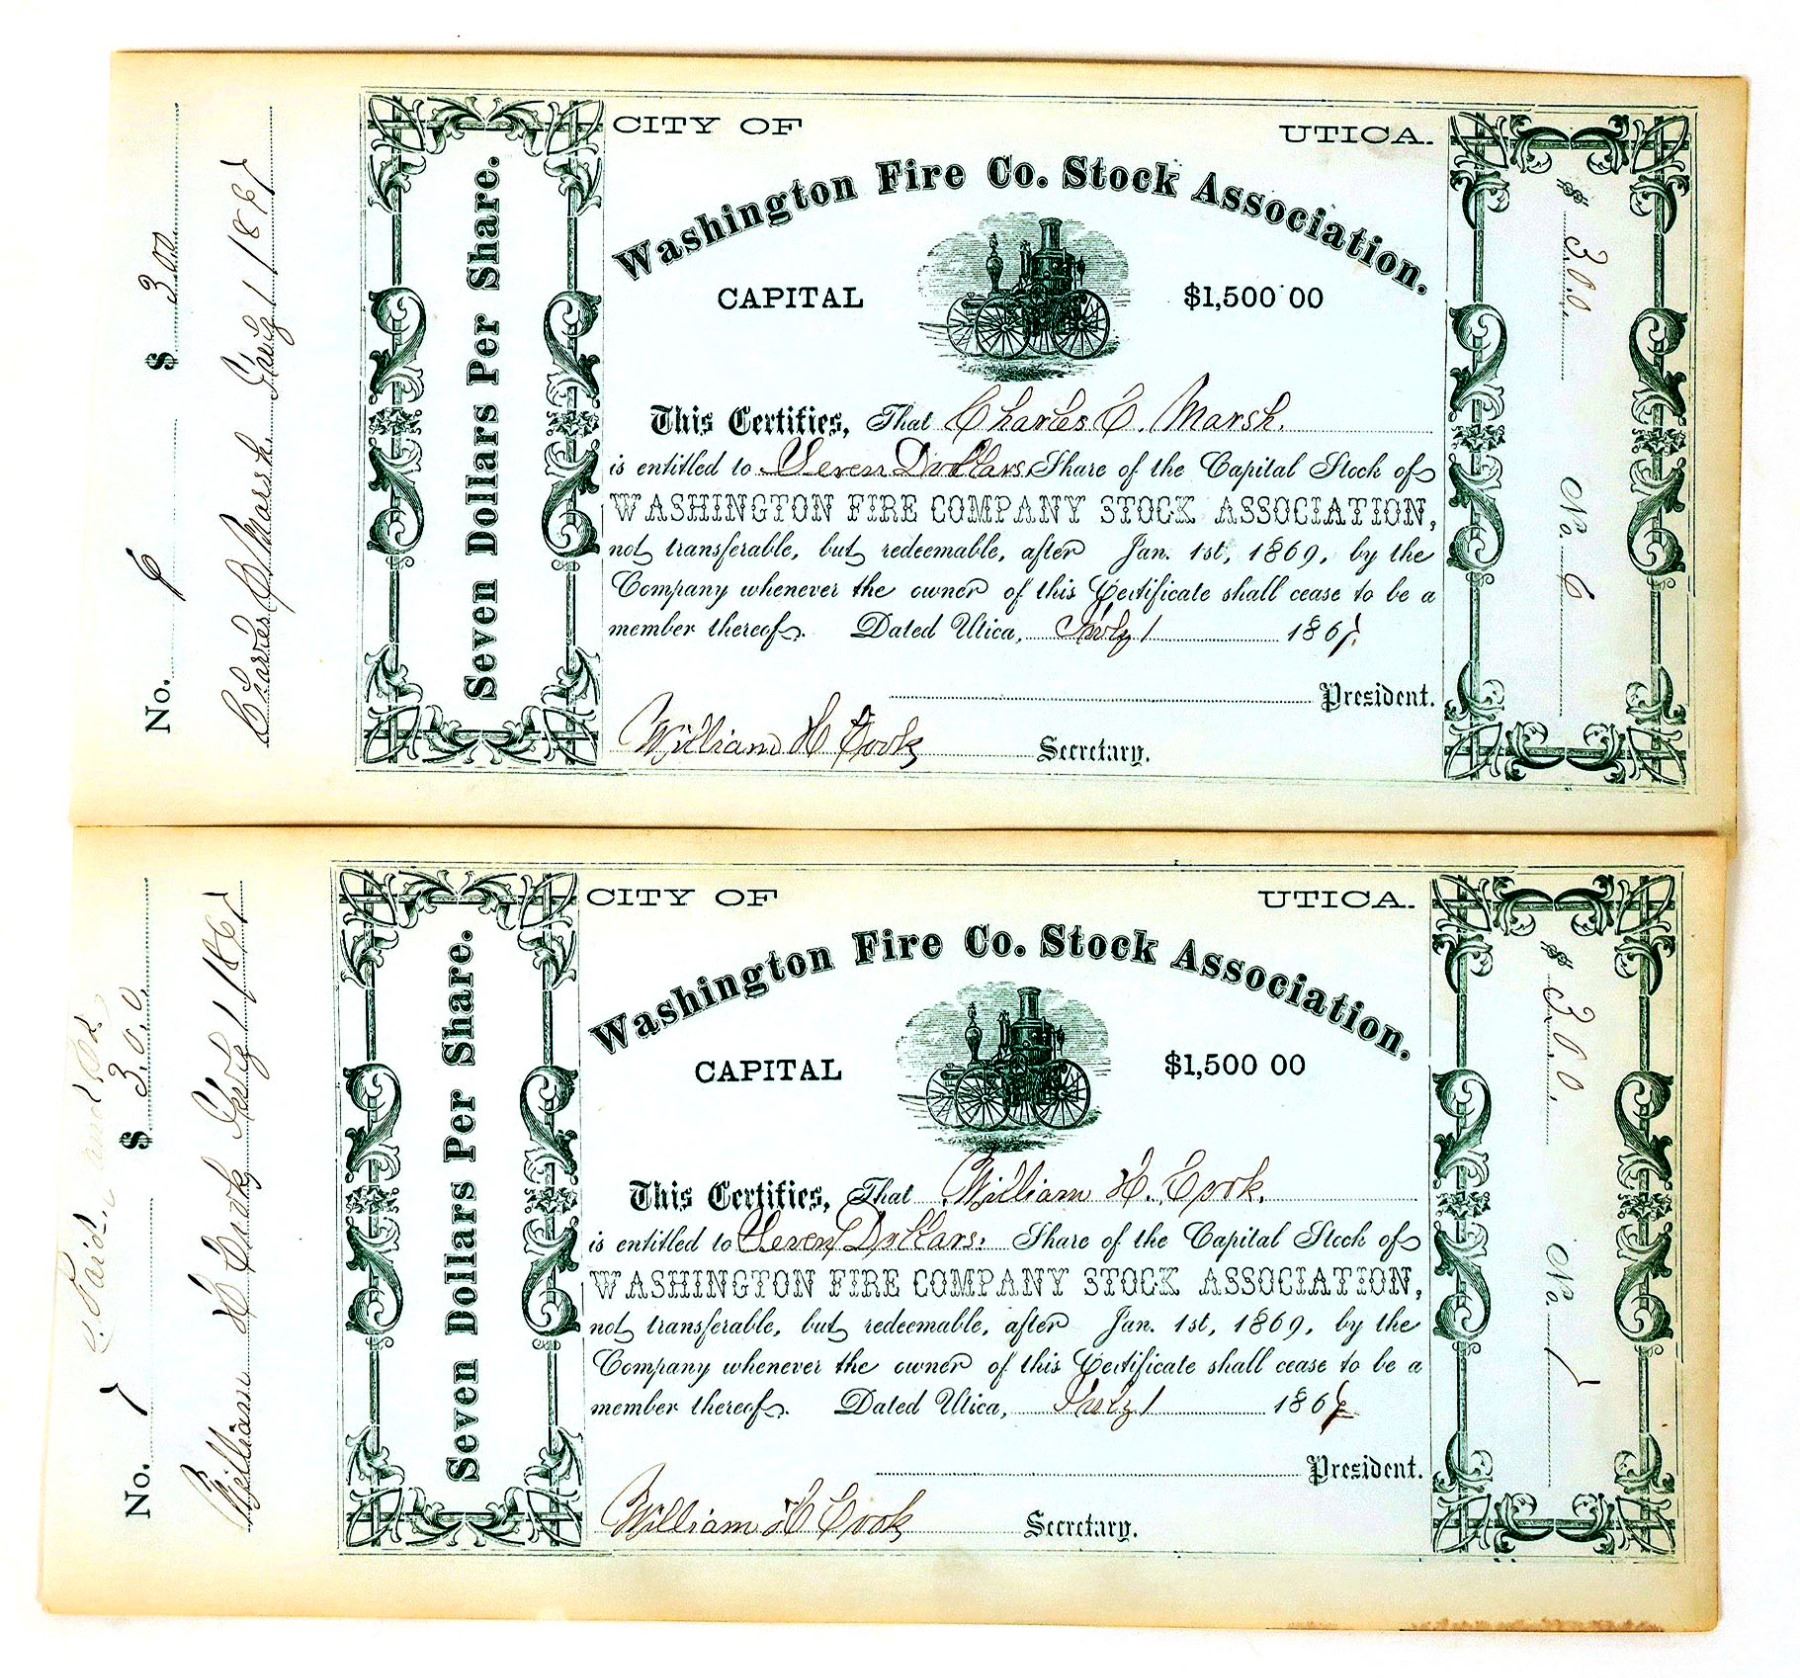 No. 6 $ 3.00
Charles C. Marsh July 1 1867
Seven Dollars Per Share.
CITY OF UTICA.
Washington Fire Co. Stock Association.
CAPITAL $1,500 00
This Certifies, That Charles C. Marsh.
is entitled to Seven Dollars Share of the Capital Stock of
WASHINGTON FIRE COMPANY STOCK ASSOCIATION,
not transferable, but redeemable, after Jan. 1st, 1869, by the
Company whenever the owner of this Certificate shall cease to be a
member thereof. Dated Utica, July 1 1867.
President.
William H Cook Secretary.
$ 3.00. No. 6
Paid
No. 7 $ 3.00.
William H Cook July 1 1867
Seven Dollars Per Share.
CITY OF UTICA.
Washington Fire Co. Stock Association.
CAPITAL $1,500 00
This Certifies, That William H. Cook.
is entitled to Seven Dollars. Share of the Capital Stock of
WASHINGTON FIRE COMPANY STOCK ASSOCIATION,
not transferable, but redeemable, after Jan. 1st, 1869, by the
Company whenever the owner of this Certificate shall cease to be a
member thereof. Dated Utica, July 1 1867
President.
William H Cook Secretary.
$ 3.00. No. 7